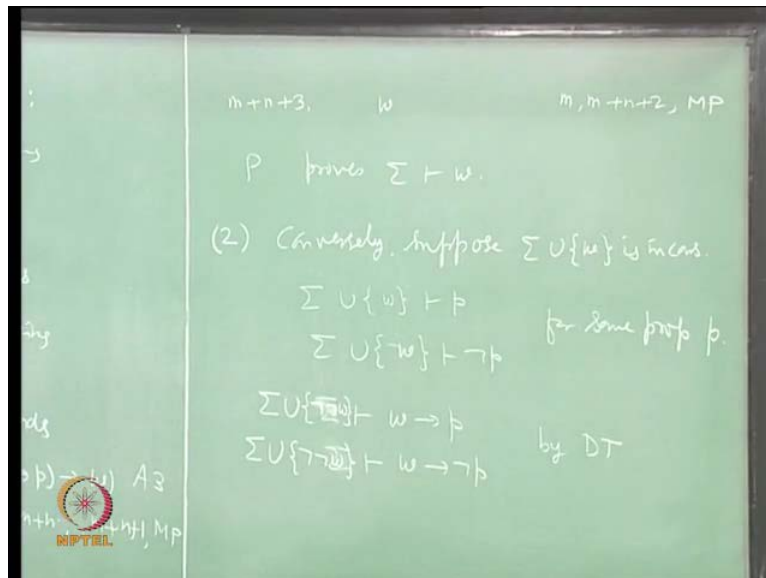 :
m+n+3, w m, m+n+2, MP
P proves Σ ⊢ w.
(2) Conversely, suppose Σ ∪ {w} is incons.
Σ ∪ {w} ⊢ p
for some prop p.
Σ ∪ {¬w} ⊢ ¬p
Σ ∪ {¬¬w} ⊢ w → p
by DT
Σ ∪ {¬¬w} ⊢ w → ¬p
p) → w) A3
m+n+1, MP
NPTEL